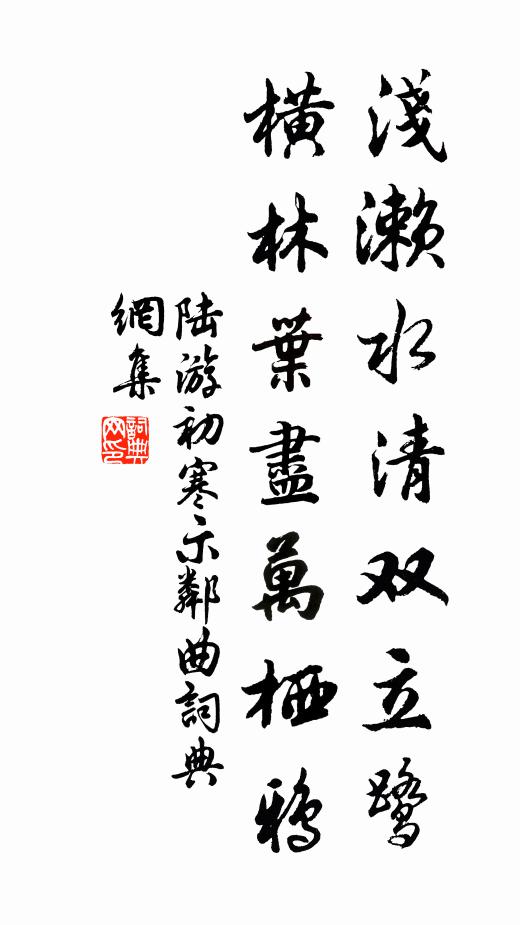 淺瀨水清双立鷺
橫林葉盡萬栖鴉
陆游初寒示鄰曲詞典
網集
詞典
网印